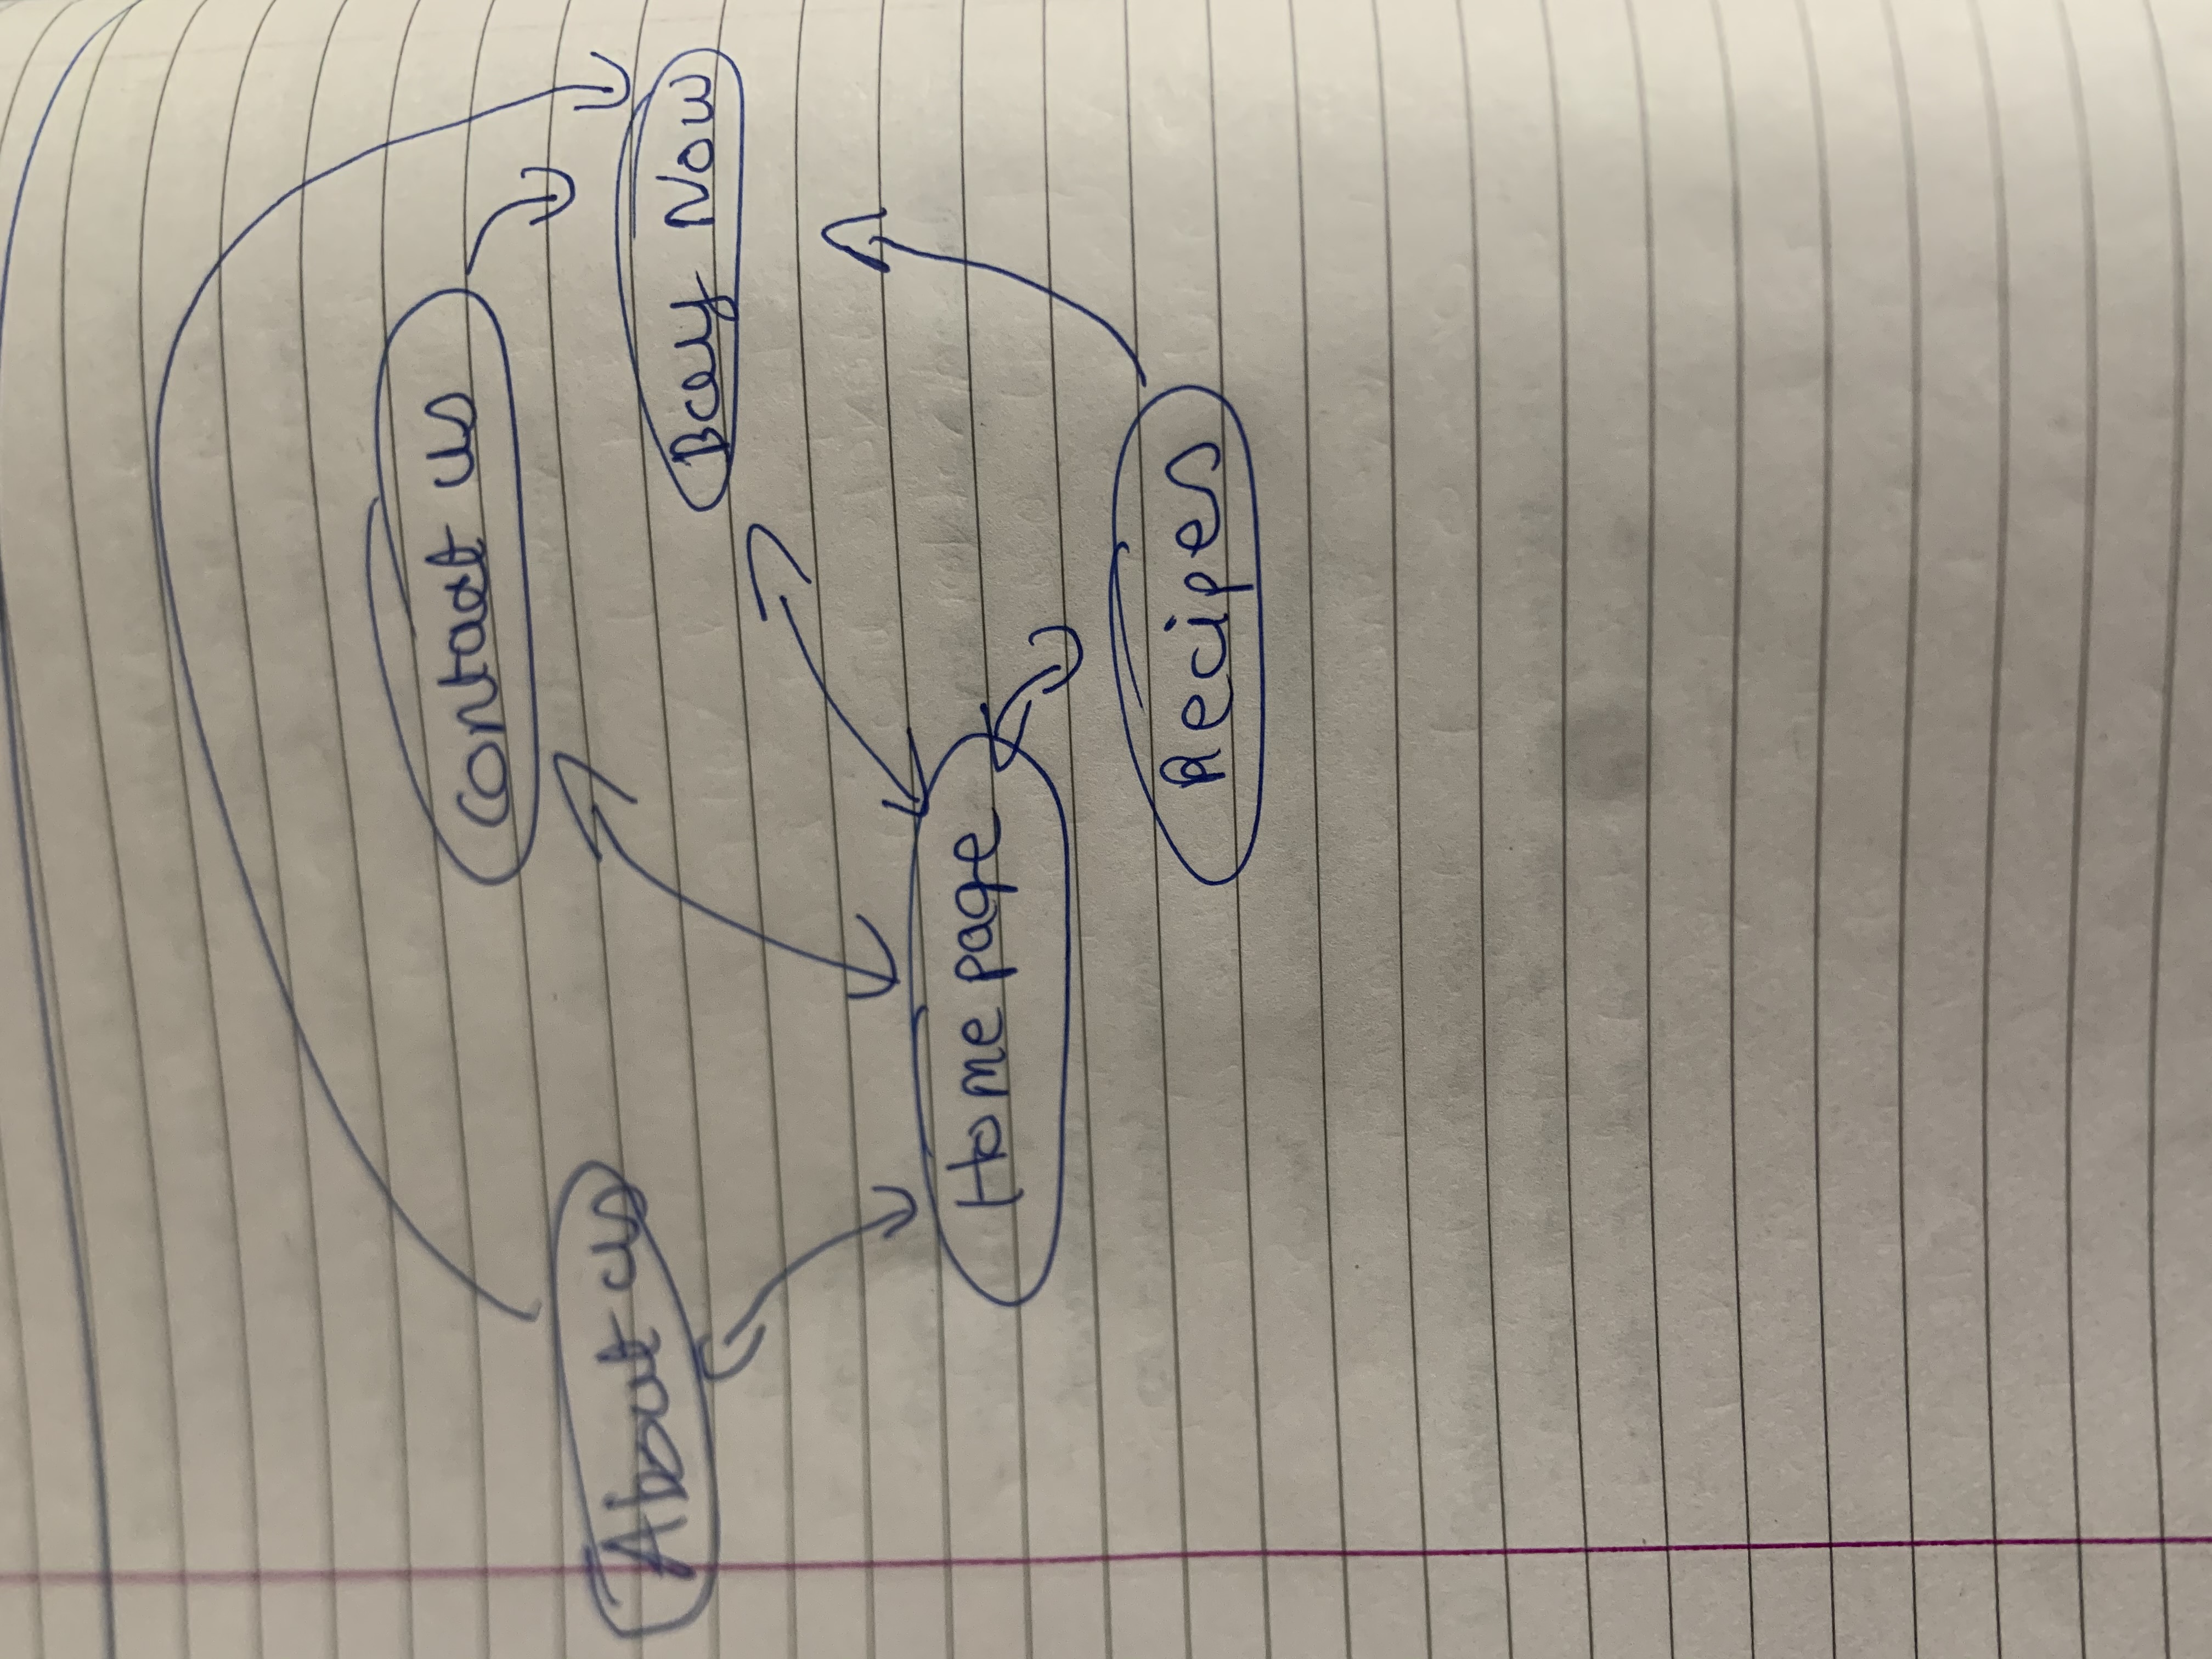 Contact us
About us
Buy Now
Home page
Recipes